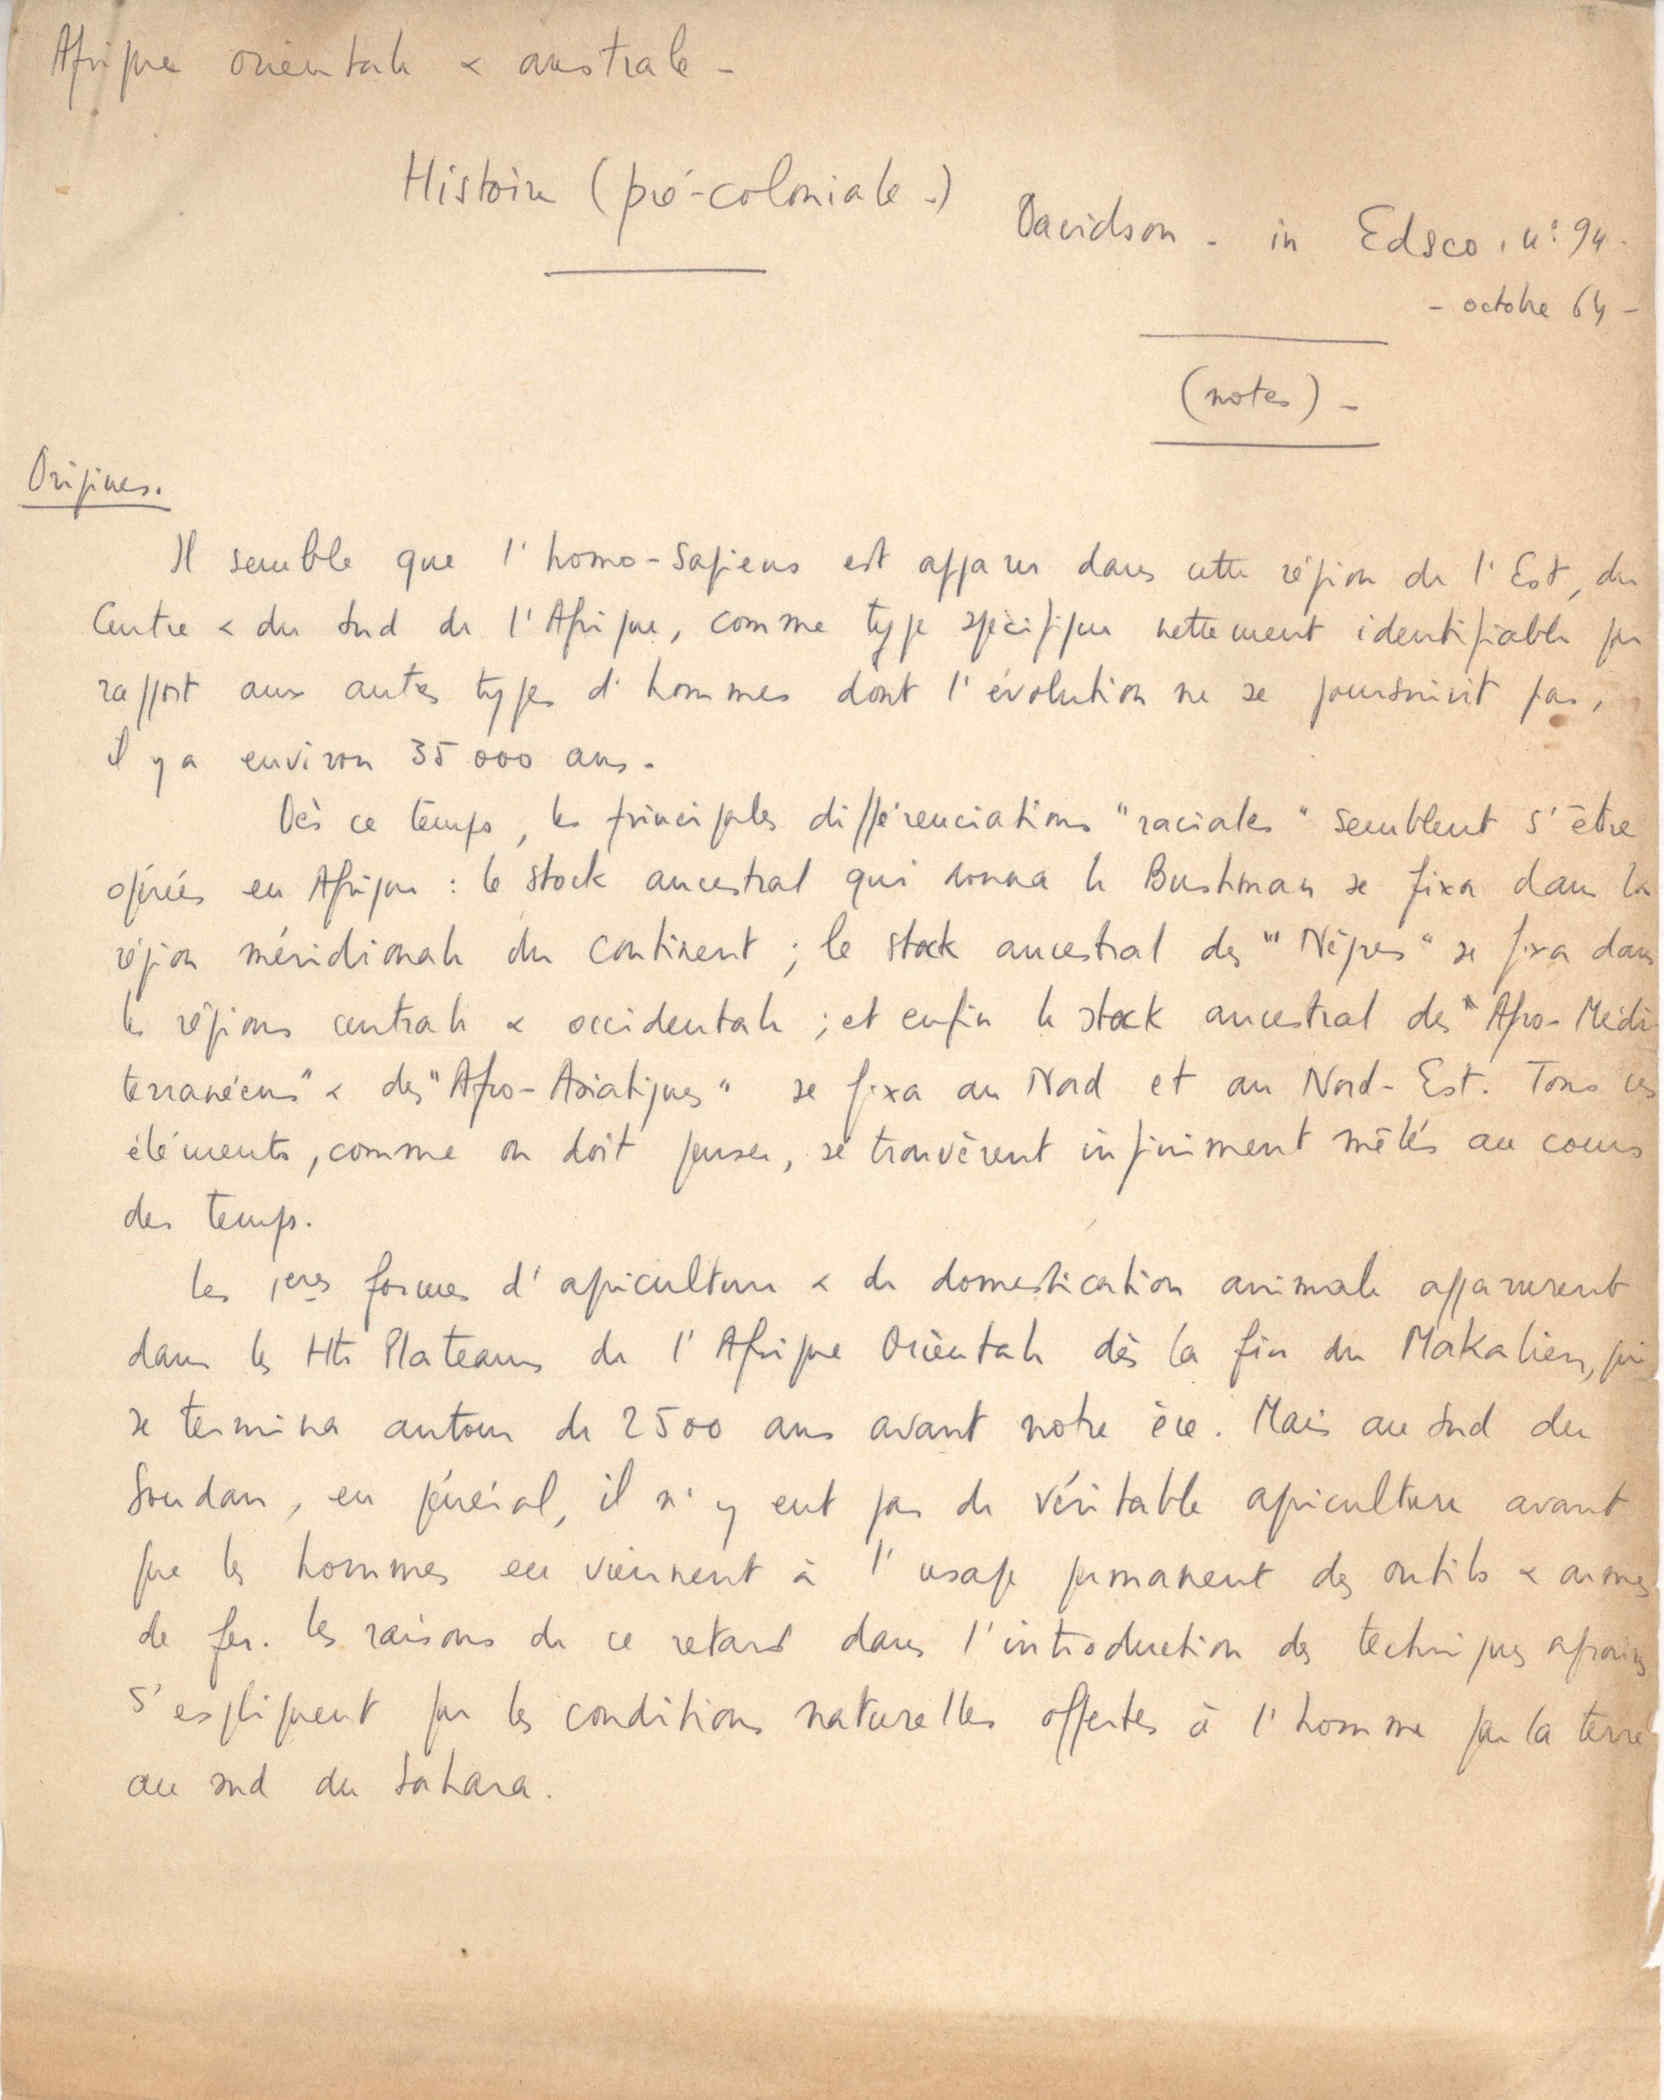 Afrique orientale & australe -
Histoire (pré-coloniale -)
Davidson - in Edsco, n° 94 -
- octobre 64 -
(notes) -
Origines.
Il semble que l'homo-sapiens est apparu dans cette région de l'Est, du
Centre & du Sud de l'Afrique, comme type spécifique nettement identifiable par
rapport aux autres types d'hommes dont l'évolution ne se poursuivit pas,
il y a environ 35 000 ans.
Dès ce temps, les principales différenciations "raciales" semblent s'être
opérées en Afrique : le stock ancestral qui donna le Bushman se fixa dans la
région méridionale du continent ; le stock ancestral des "Nègres" se fixa dans
les régions centrale & occidentale ; et enfin le stock ancestral des "Afro-Médi
terranéens" & des "Afro-Asiatiques" se fixa au Nord et au Nord-Est. Tous ces
éléments, comme on doit penser, se trouvèrent infiniment mêlés au cours
des temps.
Les 1eres formes d'agriculture & de domestication animale apparurent
dans les Hts Plateaux de l'Afrique Orientale dès la fin du Makalien, qui
se termina autour de 2500 ans avant notre ère. Mais au Sud du
Soudan, en général, il n'y eut pas de véritable agriculture avant
que les hommes en viennent à l'usage permanent des outils & armes
de fer. Les raisons de ce retard dans l'introduction des techniques agraires
s'expliquent par les conditions naturelles offertes à l'homme par la terre
au sud du Sahara.